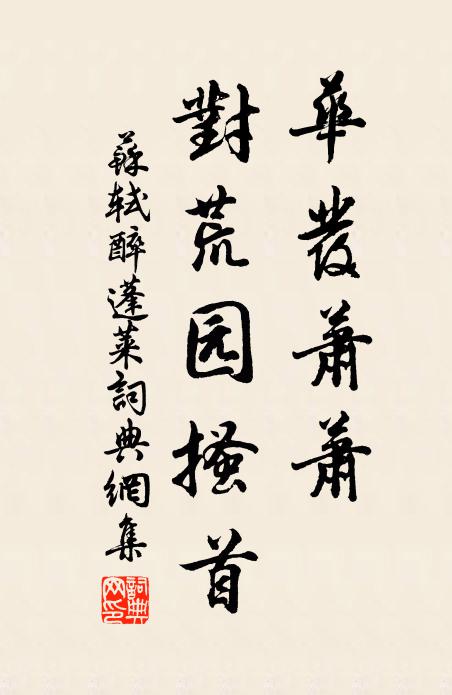 華發蕭蕭
對荒园搔首
蘇軾醉蓬萊詞典網集
詞典网印